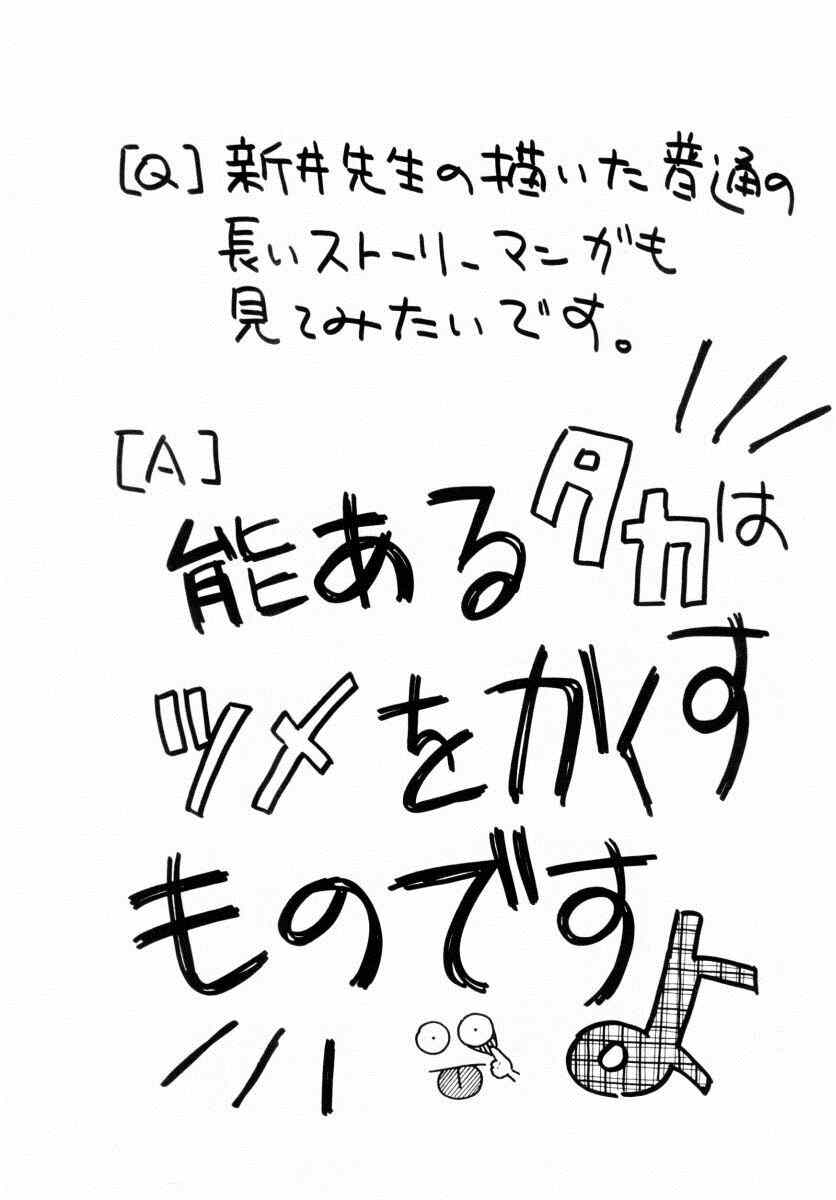 [Q] 新井先生の描いた普通の
長いストーリーマンガも
見てみたいです。
[A]
能あるタカは
ツメをかくす
ものですよ